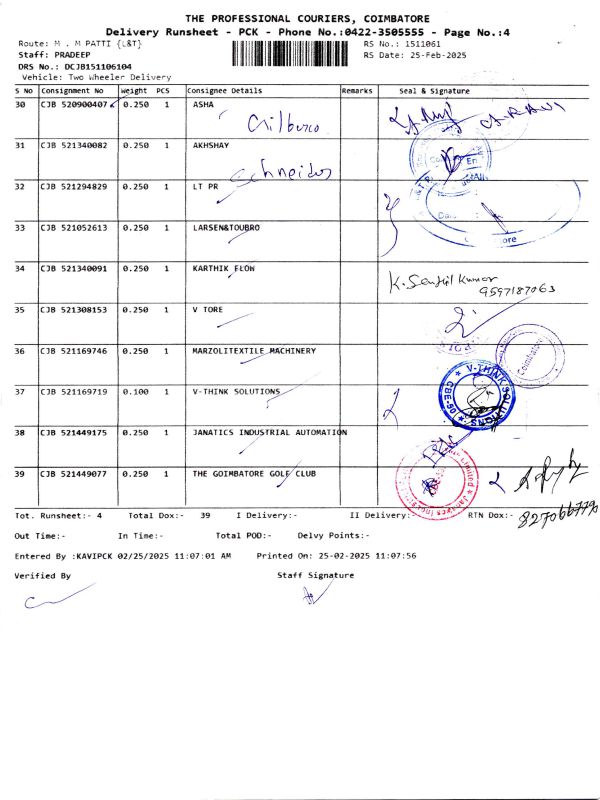 THE PROFESSIONAL COURIERS, COIMBATORE
Delivery Runsheet - PCK - Phone No.:0422-3505555 - Page No.:4
Route: M . M PATTI {L&T}
RS No.: 1511061
Staff: PRADEEP
RS Date: 25-Feb-2025
DRS No.: DCJB151106104
Vehicle: Two Wheeler Delivery
S No Consignment No Weight PCS Consignee Details Remarks Seal & Signature
30 CJB 520900407 0.250 1 ASHA
31 CJB 521340082 0.250 1 AKHSHAY
Schneider
32 CJB 521294829 0.250 1 LT PR
33 CJB 521052613 0.250 1 LARSEN&TOUBRO
34 CJB 521340091 0.250 1 KARTHIK FLOW
K. Senthil Kumar
9597187063
35 CJB 521308153 0.250 1 V TORE
36 CJB 521169746 0.250 1 MARZOLITEXTILE MACHINERY
Coimbatore
37 CJB 521169719 0.100 1 V-THINK SOLUTIONS
V-THINK SOLUTIONS
38 CJB 521449175 0.250 1 JANATICS INDUSTRIAL AUTOMATION
39 CJB 521449077 0.250 1 THE GOIMBATORE GOLF CLUB
Tot. Runsheet:- 4 Total Dox:- 39 I Delivery:- II Delivery:- RTN Dox:-
Out Time:- In Time:- Total POD:- Delvy Points:-
Entered By :KAVIPCK 02/25/2025 11:07:01 AM Printed On: 25-02-2025 11:07:56
Verified By Staff Signature